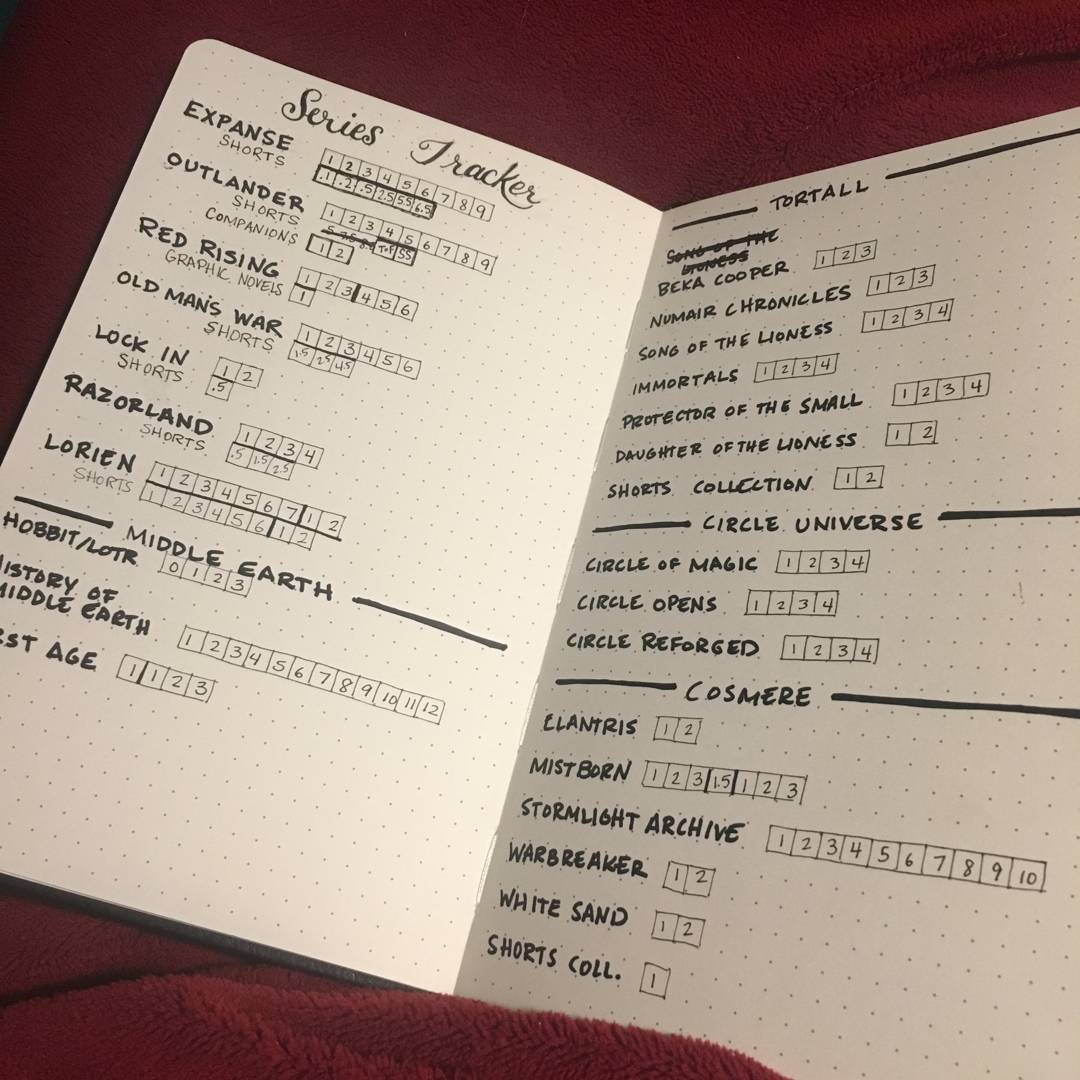 Series Tracker
EXPANSE 1 2 3 4 5 6 7 8 9
SHORTS .1 .2 .5 2.5 5.5 6.5
OUTLANDER 1 2 3 4 5 6 7 8 9
SHORTS
COMPANIONS 1 2
RED RISING 1 2 3 4 5 6
GRAPHIC NOVELS 1
OLD MAN'S WAR 1 2 3 4 5 6
SHORTS 1.5 2.5 4.5
LOCK IN 1 2
SHORTS .5
RAZORLAND 1 2 3 4
SHORTS .5 1.5 2.5
LORIEN 1 2 3 4 5 6 7 1 2
SHORTS 1 2 3 4 5 6 1 2
MIDDLE EARTH
HOBBIT/LOTR 0 1 2 3
ISTORY OF
MIDDLE EARTH 1 2 3 4 5 6 7 8 9 10 11 12
ST AGE 1 1 2 3
TORTALL
SONG OF THE
LIONESS
BEKA COOPER 1 2 3
NUMAIR CHRONICLES 1 2 3
SONG OF THE LIONESS 1 2 3 4
IMMORTALS 1 2 3 4
PROTECTOR OF THE SMALL 1 2 3 4
DAUGHTER OF THE LIONESS 1 2
SHORTS COLLECTION 1 2
CIRCLE UNIVERSE
CIRCLE OF MAGIC 1 2 3 4
CIRCLE OPENS 1 2 3 4
CIRCLE REFORGED 1 2 3 4
COSMERE
ELANTRIS 1 2
MISTBORN 1 2 3 1.5 1 2 3
STORMLIGHT ARCHIVE 1 2 3 4 5 6 7 8 9 10
WARBREAKER 1 2
WHITE SAND 1 2
SHORTS COLL. 1